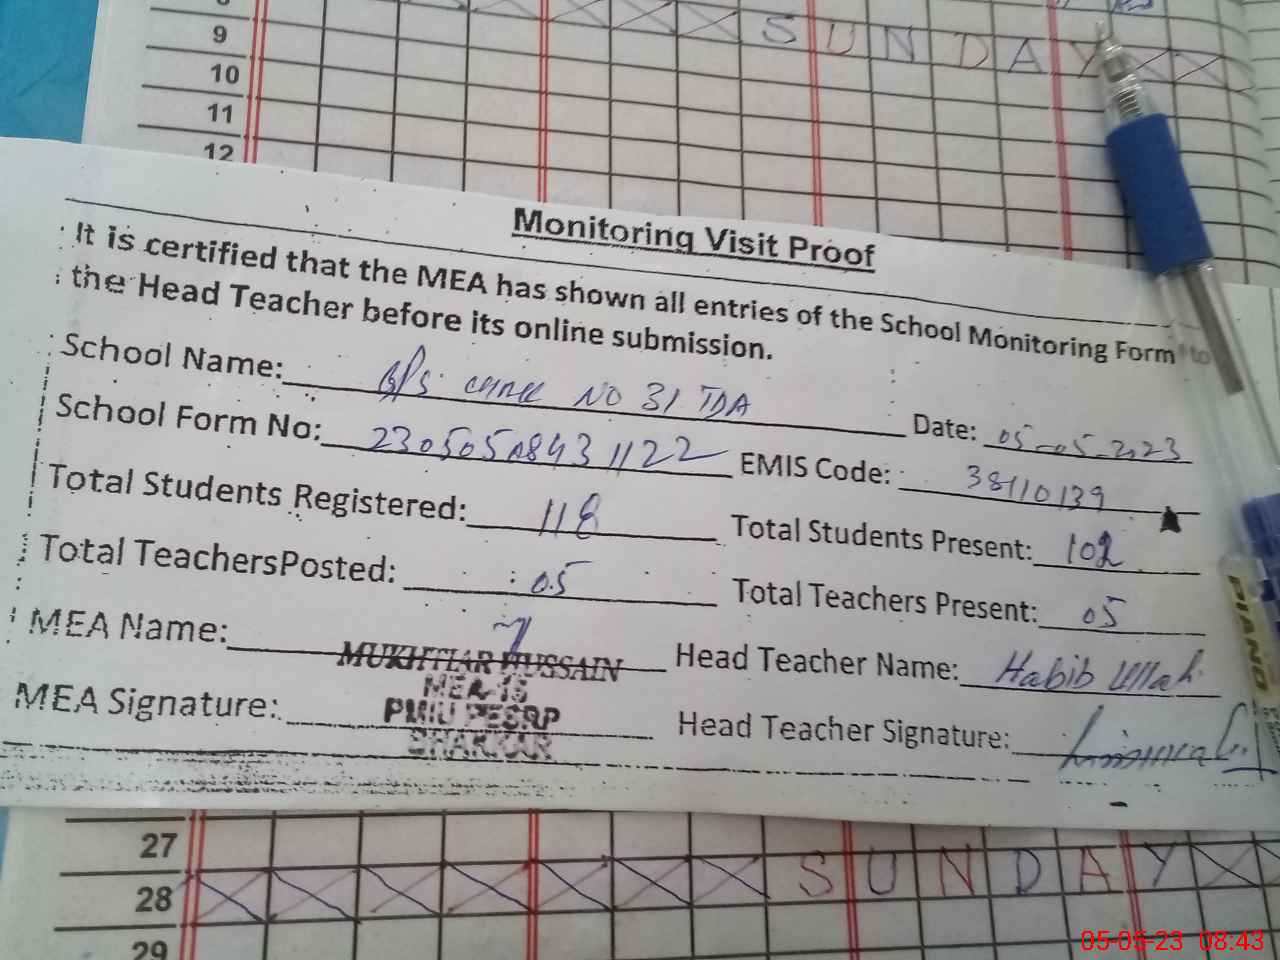 SUNDAY
9
10
11
12
Monitoring Visit Proof
It is certified that the MEA has shown all entries of the School Monitoring Form to
the Head Teacher before its online submission.
School Name: GPS Chak NO 31 TDA
Date: 05-05-2023
School Form No: 2305050843 1122
EMIS Code: 38110139
Total Students Registered: 118
Total Students Present: 102
Total TeachersPosted: 05
Total Teachers Present: 05
MEA Name: MUKHTIAR HUSSAIN
MEA-15
Head Teacher Name: Habib Ullah
MEA Signature: PMIU PESRP
BHAKKAR
Head Teacher Signature:
PIANO
27
28 SUNDAY
29
05-05-23 08:43